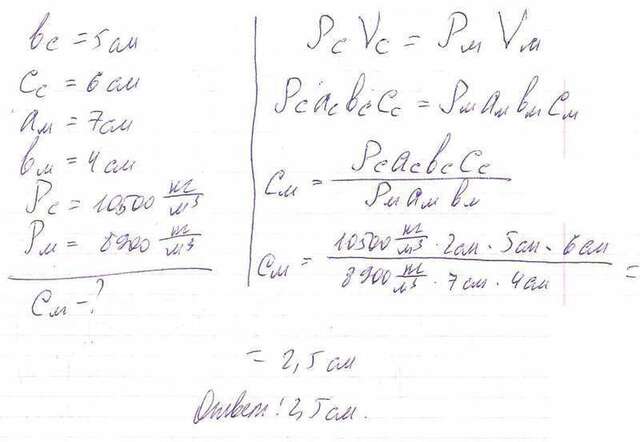 bc = 5 см
cc = 6 см
ам = 7 см
bм = 4 см
ρс = 10500 кг/м³
ρм = 8900 кг/м³
cм - ?
ρc Vc = ρм Vм
ρc ac bc cc = ρм ам bм cм
cм = ρc ac bc cc / ρм ам bм
cм = 10500 кг/м³ · 2 см · 5 см · 6 см / 8900 кг/м³ · 7 см · 4 см =
= 2,5 см
Ответ: 2,5 см.